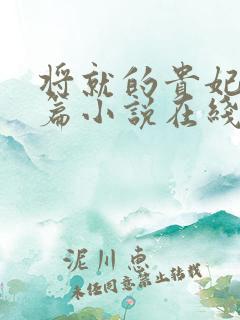 将就的贵妃
篇小说在线
泥川惠
未经同意禁止转载